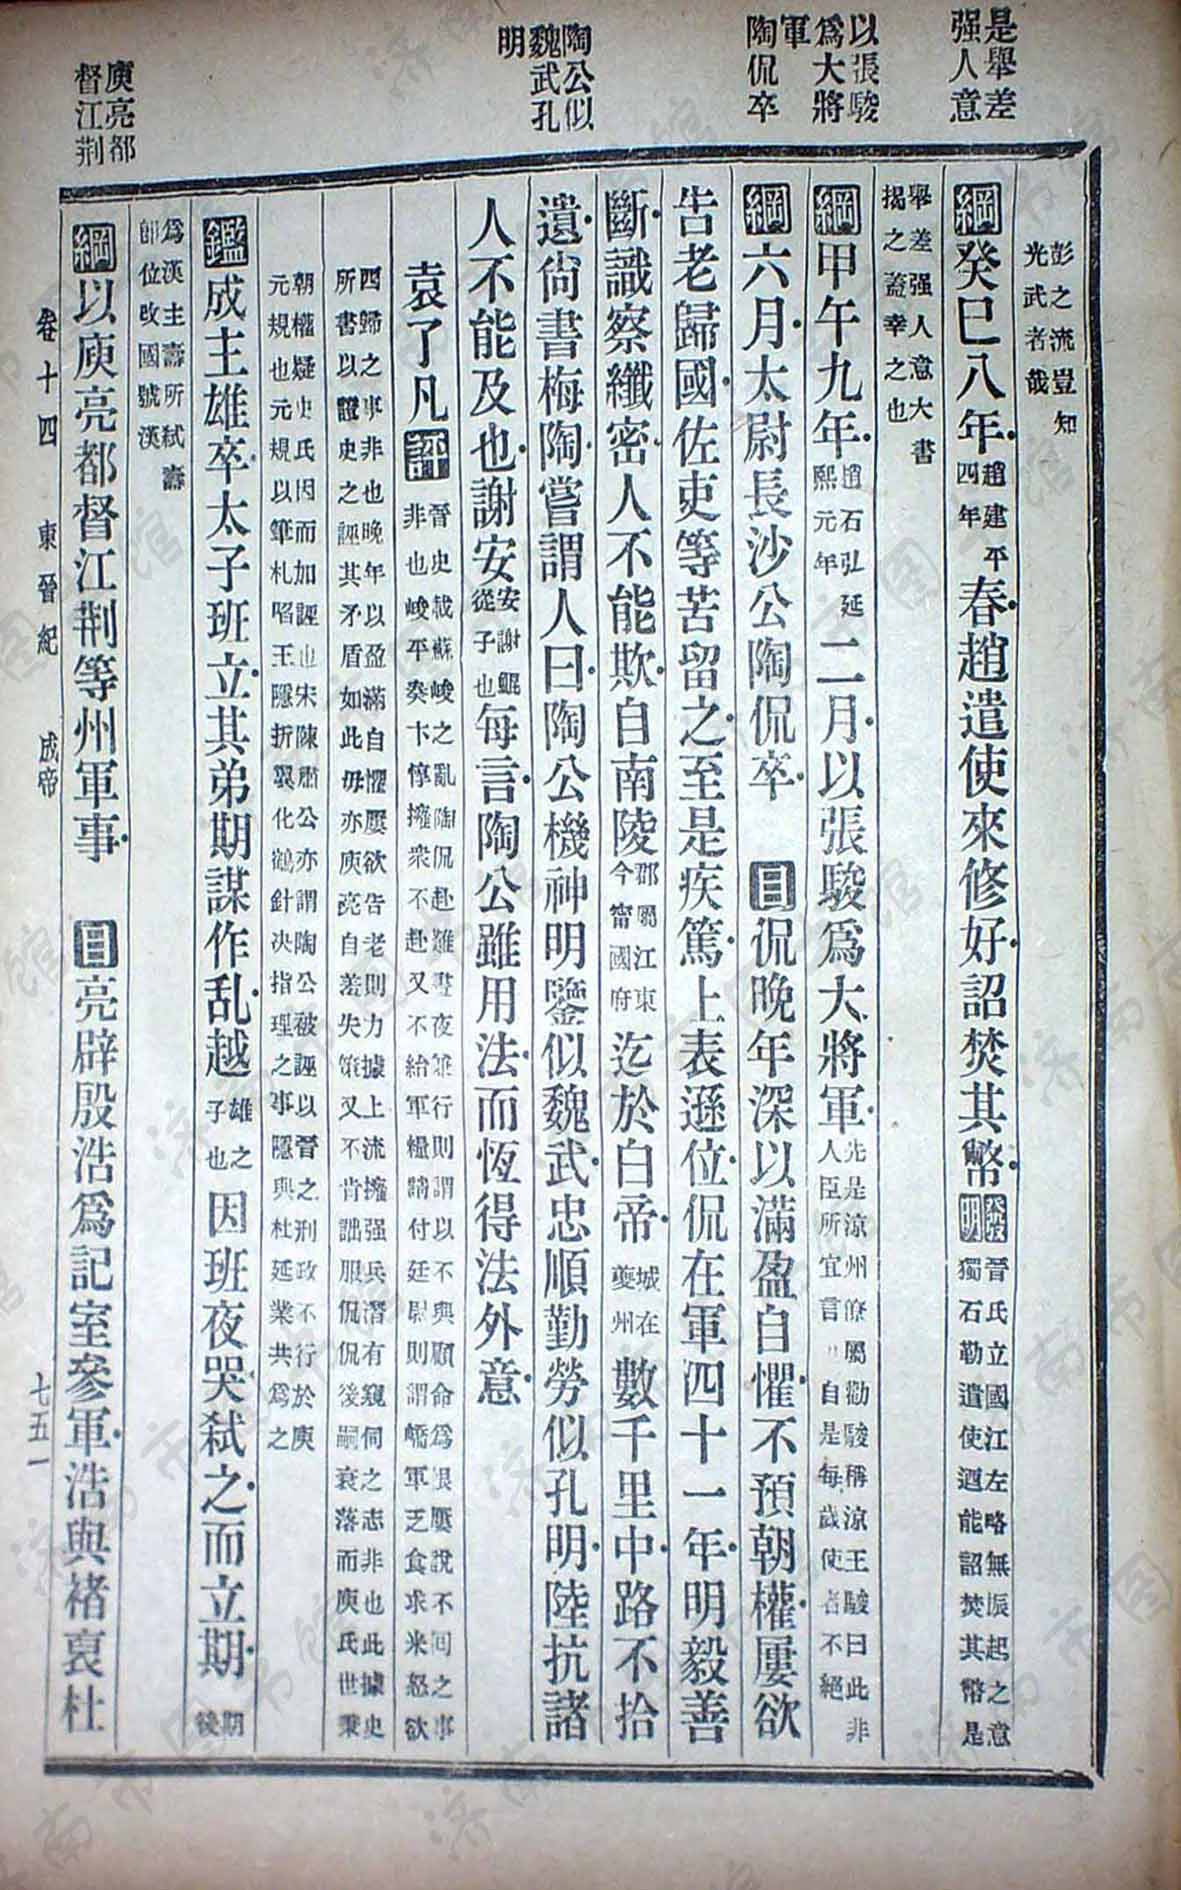 是舉差
强人意
以張駿
爲大將
軍
陶侃卒
陶公似
魏武孔
明
庾亮都
督江荆
彭之流豈知
光武者哉
綱癸巳八年趙建平四年春趙遣使來修好詔焚其幣發明晉氏立國江左略無振起之意獨石勒遣使迺能詔焚其幣是
舉差强人意大書揭之蓋幸之也
綱甲午九年趙石弘延熙元年二月以張駿爲大將軍先是涼州僚屬勸駿稱涼王駿曰此非人臣所宜言自是每歲使者不絕
綱六月太尉長沙公陶侃卒 目侃晚年深以滿盈自懼不預朝權屢欲
告老歸國佐吏等苦留之至是疾篤上表遜位侃在軍四十一年明毅善
斷識察纖密人不能欺自南陵郡屬江東今甯國府迄於白帝城在夔州數千里中路不拾
遺尙書梅陶嘗謂人曰陶公機神明鑒似魏武忠順勤勞似孔明陸抗諸
人不能及也謝安安謝鯤從子也每言陶公雖用法而恆得法外意
袁了凡評晉史載蘇峻之亂陶侃赴難晝夜兼行則謂以不與顧命爲恨屢說不回之事非也峻平奏卞惇擁衆不赴又不給軍糧請付廷尉則謂嶠軍乏食求米怒欲
西歸之事非也晚年以盈滿自懼屢欲告老則力據上流擁强兵潛有窺伺之志非也此據史所書以證史之誣其矛盾如此毋亦庾亮自羞失策又不肯詘服侃侃後嗣衰落而庾氏世秉
朝權疑史氏因而加誣也宋陳肅公亦謂陶公被誣以晉之刑政不行於庾元規也元規以筆札啗王隱折翼化鶴針決指理之事隱與杜延業共爲之
鑑成主雄卒太子班立其弟期謀作乱越雄之子也因班夜哭弑之而立期期後
爲漢主壽所弑壽卽位改國號漢
綱以庾亮都督江荆等州軍事 目亮辟殷浩爲記室參軍浩與褚裒杜
卷十四 東晉紀 成帝 七五一